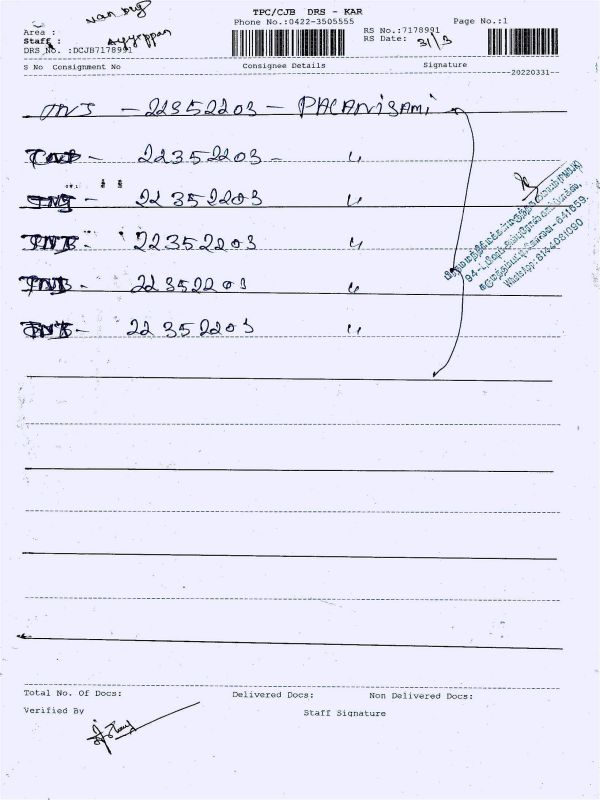 TPC/CJB DRS - KAR
Phone No.:0422-3505555
Page No.:1
Area :
RS No.:7178991
Staff : Ayyappan
RS Date: 31/3
DRS No. :DCJB7178991
S No Consignment No
Consignee Details
Signature
20220331
- 22352203 - PALANISAMI
- 22352203 - "
- 22352203 "
- 22352203 "
- 22352203 "
- 22352203 "
WhatsApp: 8144081090
Total No. Of Docs:
Delivered Docs:
Non Delivered Docs:
Verified By
Staff Signature